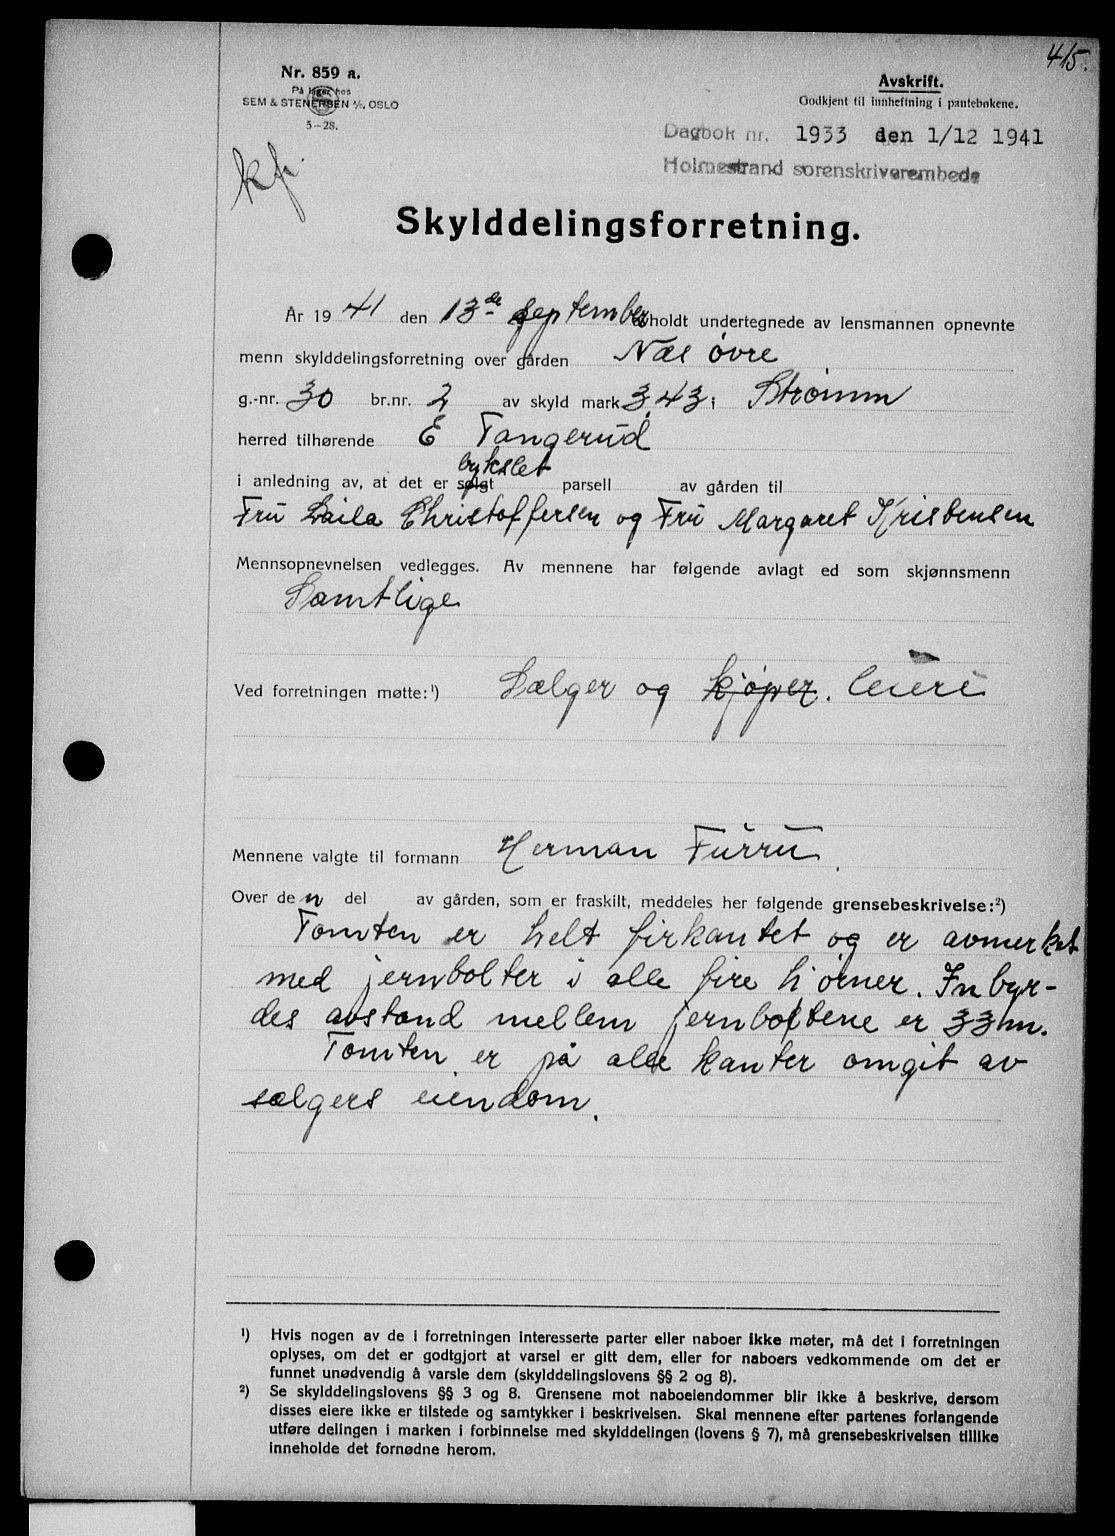 415.
Nr. 859 a.
På lager hos
SEM & STENERSEN A/S, OSLO
5-28.
Avskrift.
Godkjent til innheftning i pantebøkene.
Dagbok nr. 1933 den 1/12 1941
Holmestrand sorenskriverembede
kfr.
Skylddelingsforretning.
År 1941 den 13de september avholdt undertegnede av lensmannen opnevnte
menn skylddelingsforretning over gården Næs øvre
g.-nr. 30 br.nr. 2 av skyld mark 3,43 i Strømm
herred tilhørende E Tangerud
bykslet
i anledning av, at det er solgt parsell av gården til
Fru Laila Christoffersen og Fru Margaret Kristensen
Mennsopnevnelsen vedlegges. Av mennene har følgende avlagt ed som skjønnsmenn
Samtlige
Ved forretningen møtte:¹) Sælger og kjøper. leiere
Mennene valgte til formann Herman Furru.
Over den del av gården, som er fraskilt, meddeles her følgende grensebeskrivelse:²)
Tomten er helt firkantet og er avmerket
med jernbolter i alle fire hjørner. Inbyr-
des avstand mellem jernboltene er 33 m.
Tomten er på alle kanter omgit av
sælgers eiendom.
¹) Hvis nogen av de i forretningen interesserte parter eller naboer ikke møter, må det i forretningen
oplyses, om det er godtgjort at varsel er gitt dem, eller for naboers vedkommende om det er
funnet unødvendig å varsle dem (skylddelingslovens §§ 2 og 8).
²) Se skylddelingslovens §§ 3 og 8. Grensene mot naboeiendommer blir ikke å beskrive, dersom
disses eiere ikke er tilstede og samtykker i beskrivelsen. Skal mennene efter partenes forlangende
utføre delingen i marken i forbinnelse med skylddelingen (lovens § 7), må grensebeskrivelsen tillike
inneholde det fornødne herom.